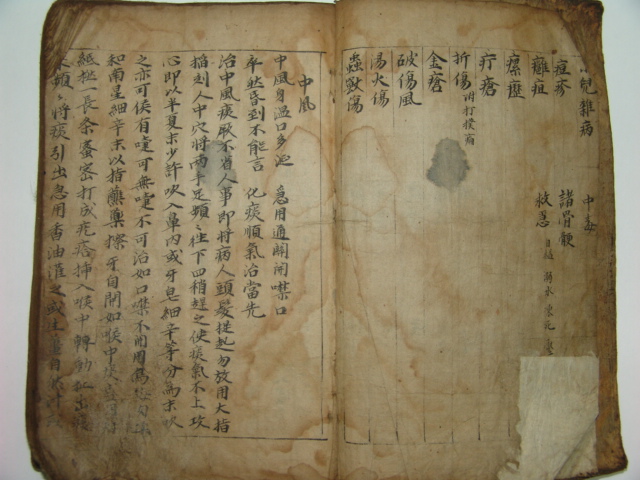 小兒雜病
痘疹
癰疽
瘰癧
疔瘡
折傷 附打撲傷
金瘡
破傷風
湯火傷
蟲獸傷
中毒
諸骨鯁
救急 自縊 溺水 凍死
中風
中風身溫口多涎 急用通關開噤口
卒然昏到不能言 化痰順氣治當先
治中風痰厥不省人事即將病人頭髮提起勿放用大指
掐刻人中穴將兩手足頻〻往下四稍趕之使痰氣不上攻
心即以半夏末少許吹入鼻內或牙皂細辛等分為末吹
之亦可候有嚏可無嚏不可治如口噤不開用
和南星細辛末以指蘸藥擦牙自開如喉中痰
紙撚一長条蜜打成挿入喉中轉動扯出
頻〻將痰引出急用香油灌之或生薑自然汁